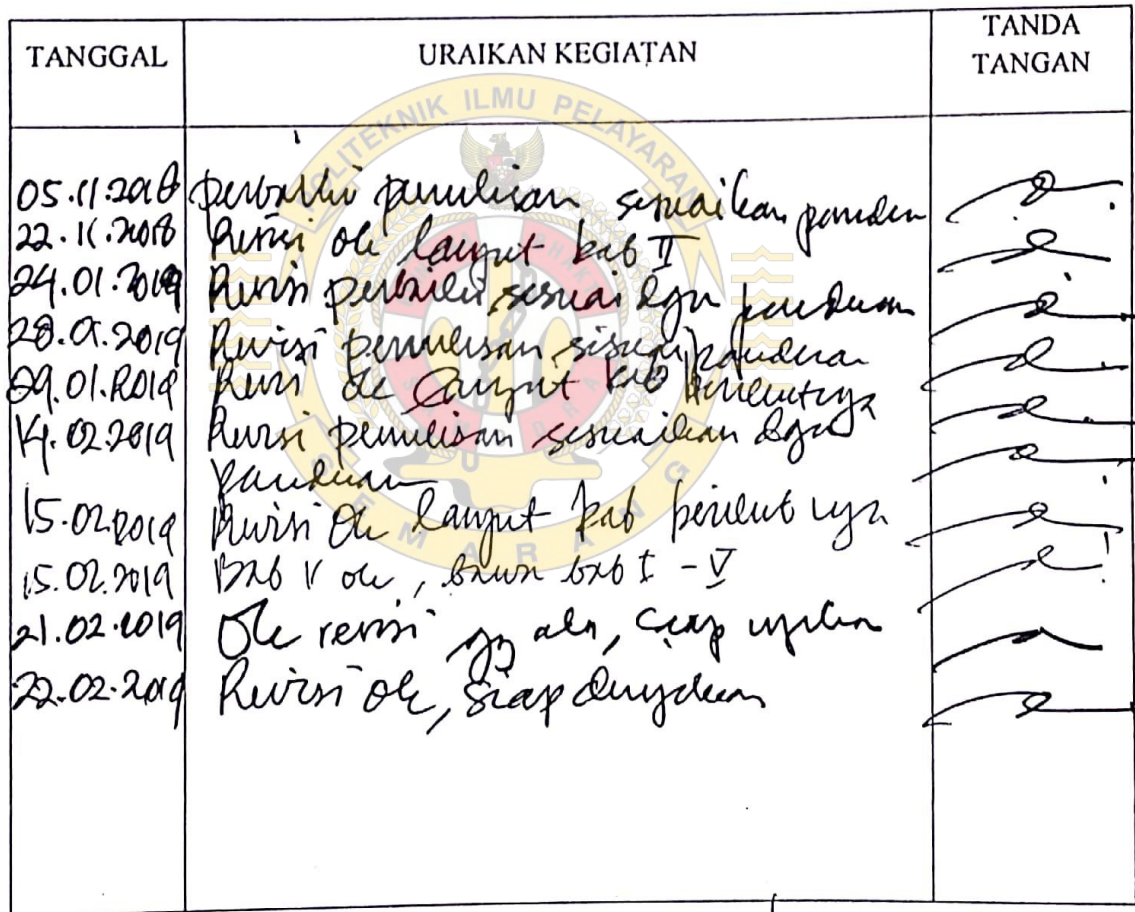 TANGGAL URAIKAN KEGIATAN TANDA TANGAN
POLITEKNIK ILMU PELAYARAN
SEMARANG
05.11.2018 perbaiki penulisan sesuaikan panduan
22.11.2018 Revisi ok lanjut bab II
24.01.2019 Revisi perbaiki, sesuai dgn panduan
28.01.2019 Revisi penulisan sesuai panduan
29.01.2019 Revisi ok lanjut bab berikutnya
14.02.2019 Revisi penulisan sesuaikan dgn
panduan
15.02.2019 Revisi ok lanjut bab berikutnya
15.02.2019 Bab V ok, bawa bab I - V
21.02.2019 Ok revisi yg ada, siap ujikan
22.02.2019 Revisi ok, siap diujikan